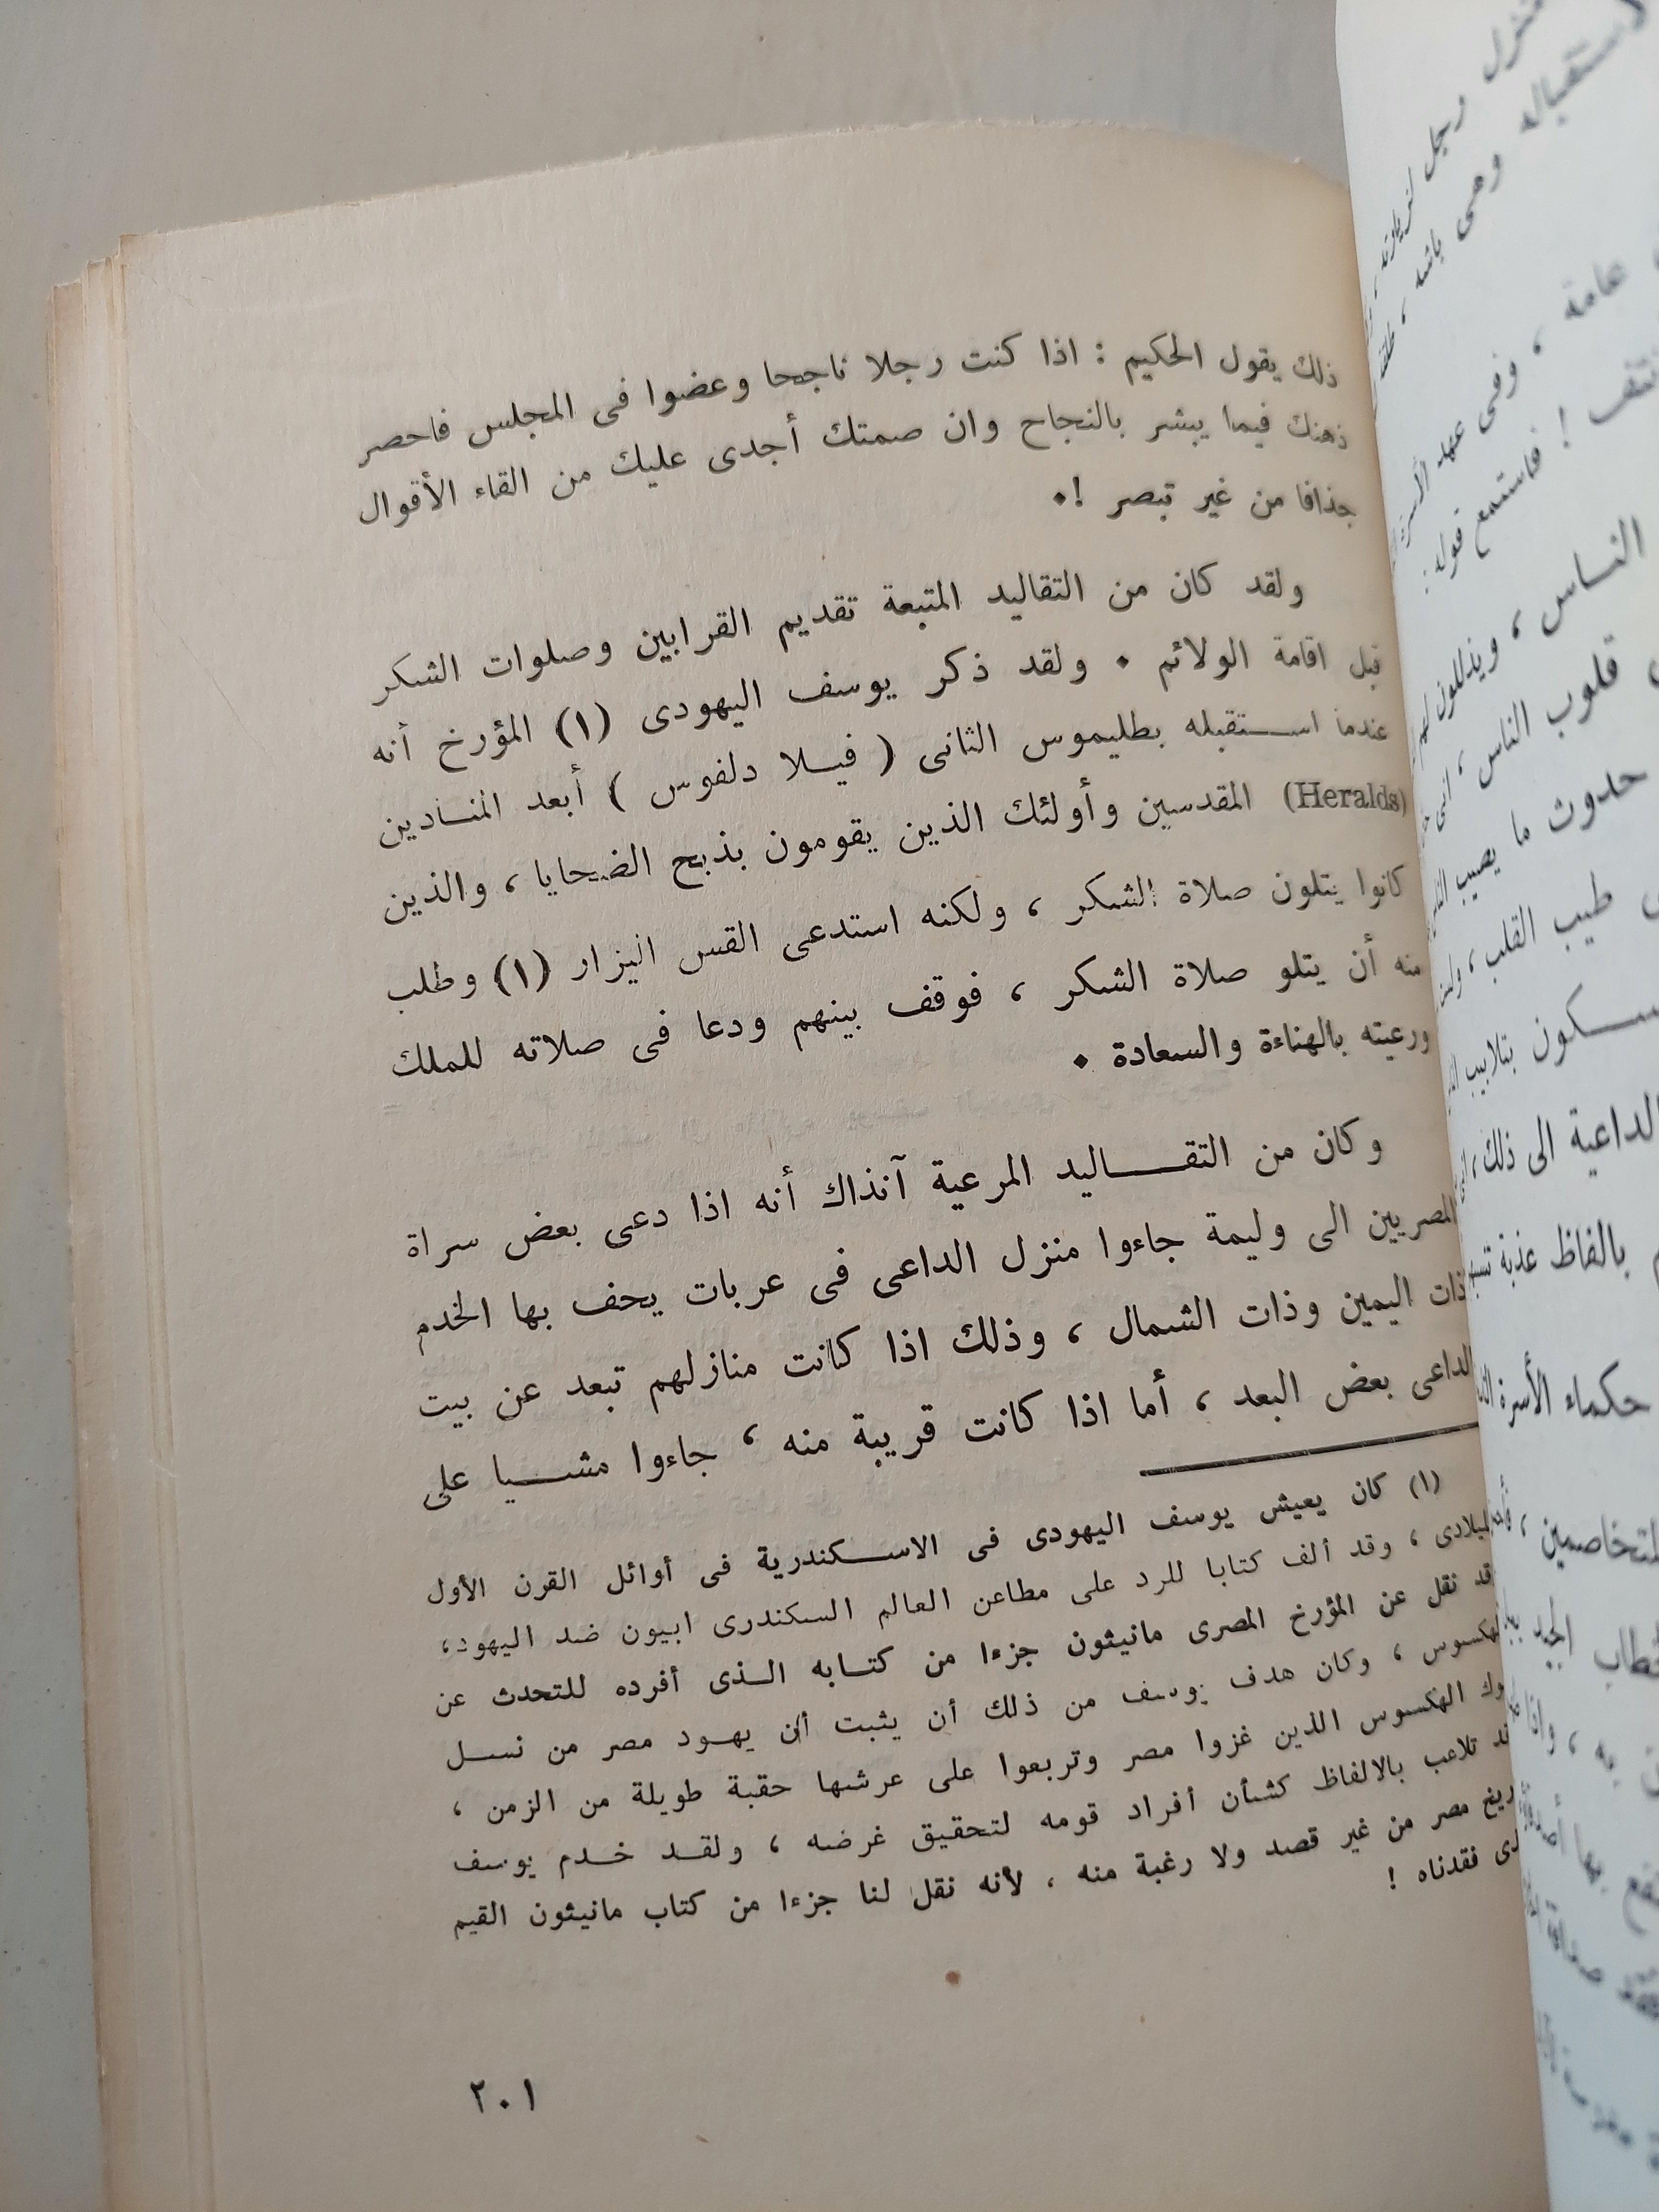 ذلك يقول الحكيم : اذا كنت رجلا ناجحا وعضوا فى المجلس فاحصر
ذهنك فيما يبشر بالنجاح وان صمتك أجدى عليك من القاء الأقوال
جذافا من غير تبصر !٠
ولقد كان من التقاليد المتبعة تقديم القرابين وصلوات الشكر
قبل اقامة الولائم ٠ ولقد ذكر يوسف اليهودى (١) المؤرخ أنه
عندما استقبله بطليموس الثانى ( فيلا دلفوس ) أبعد المنادين
(Heralds) المقدسين وأولئك الذين يقومون بذبح الضحايا ، والذين
كانوا يتلون صلاة الشكر ، ولكنه استدعى القس اليزار (١) وطلب
منه أن يتلو صلاة الشكر ، فوقف بينهم ودعا فى صلاته للملك
ورعيته بالهناءة والسعادة ٠
وكان من التقاليد المرعية آنذاك أنه اذا دعى بعض سراة
المصريين الى وليمة جاءوا منزل الداعى فى عربات يحف بها الخدم
ذات اليمين وذات الشمال ، وذلك اذا كانت منازلهم تبعد عن بيت
الداعى بعض البعد ، أما اذا كانت قريبة منه ، جاءوا مشيا على
(١) كان يعيش يوسف اليهودى فى الاسكندرية فى أوائل القرن الأول
الميلادى ، وقد ألف كتابا للرد على مطاعن العالم السكندرى ابيون ضد اليهود،
وقد نقل عن المؤرخ المصرى مانيثون جزءا من كتابه الذى أفرده للتحدث عن
الهكسوس ، وكان هدف يوسف من ذلك أن يثبت أن يهود مصر من نسل
الهكسوس الذين غزوا مصر وتربعوا على عرشها حقبة طويلة من الزمن ،
تلاعب بالالفاظ كشأن أفراد قومه لتحقيق غرضه ، ولقد خدم يوسف
مصر من غير قصد ولا رغبة منه ، لأنه نقل لنا جزءا من كتاب مانيثون القيم
نقدناه !
٢٠١
منزل رجل لزيارته
لاستقباله وهى باشه ،
عامة ، وفى عهد الأسرة
فاستمع قوله :
الناس ، ويذللون لهم
قلوب الناس ،
حدوث ما يصيب
طيب القلب ،
بتلابيب
الداعية الى ذلك ،
بالفاظ عذبة
حكماء الأسرة